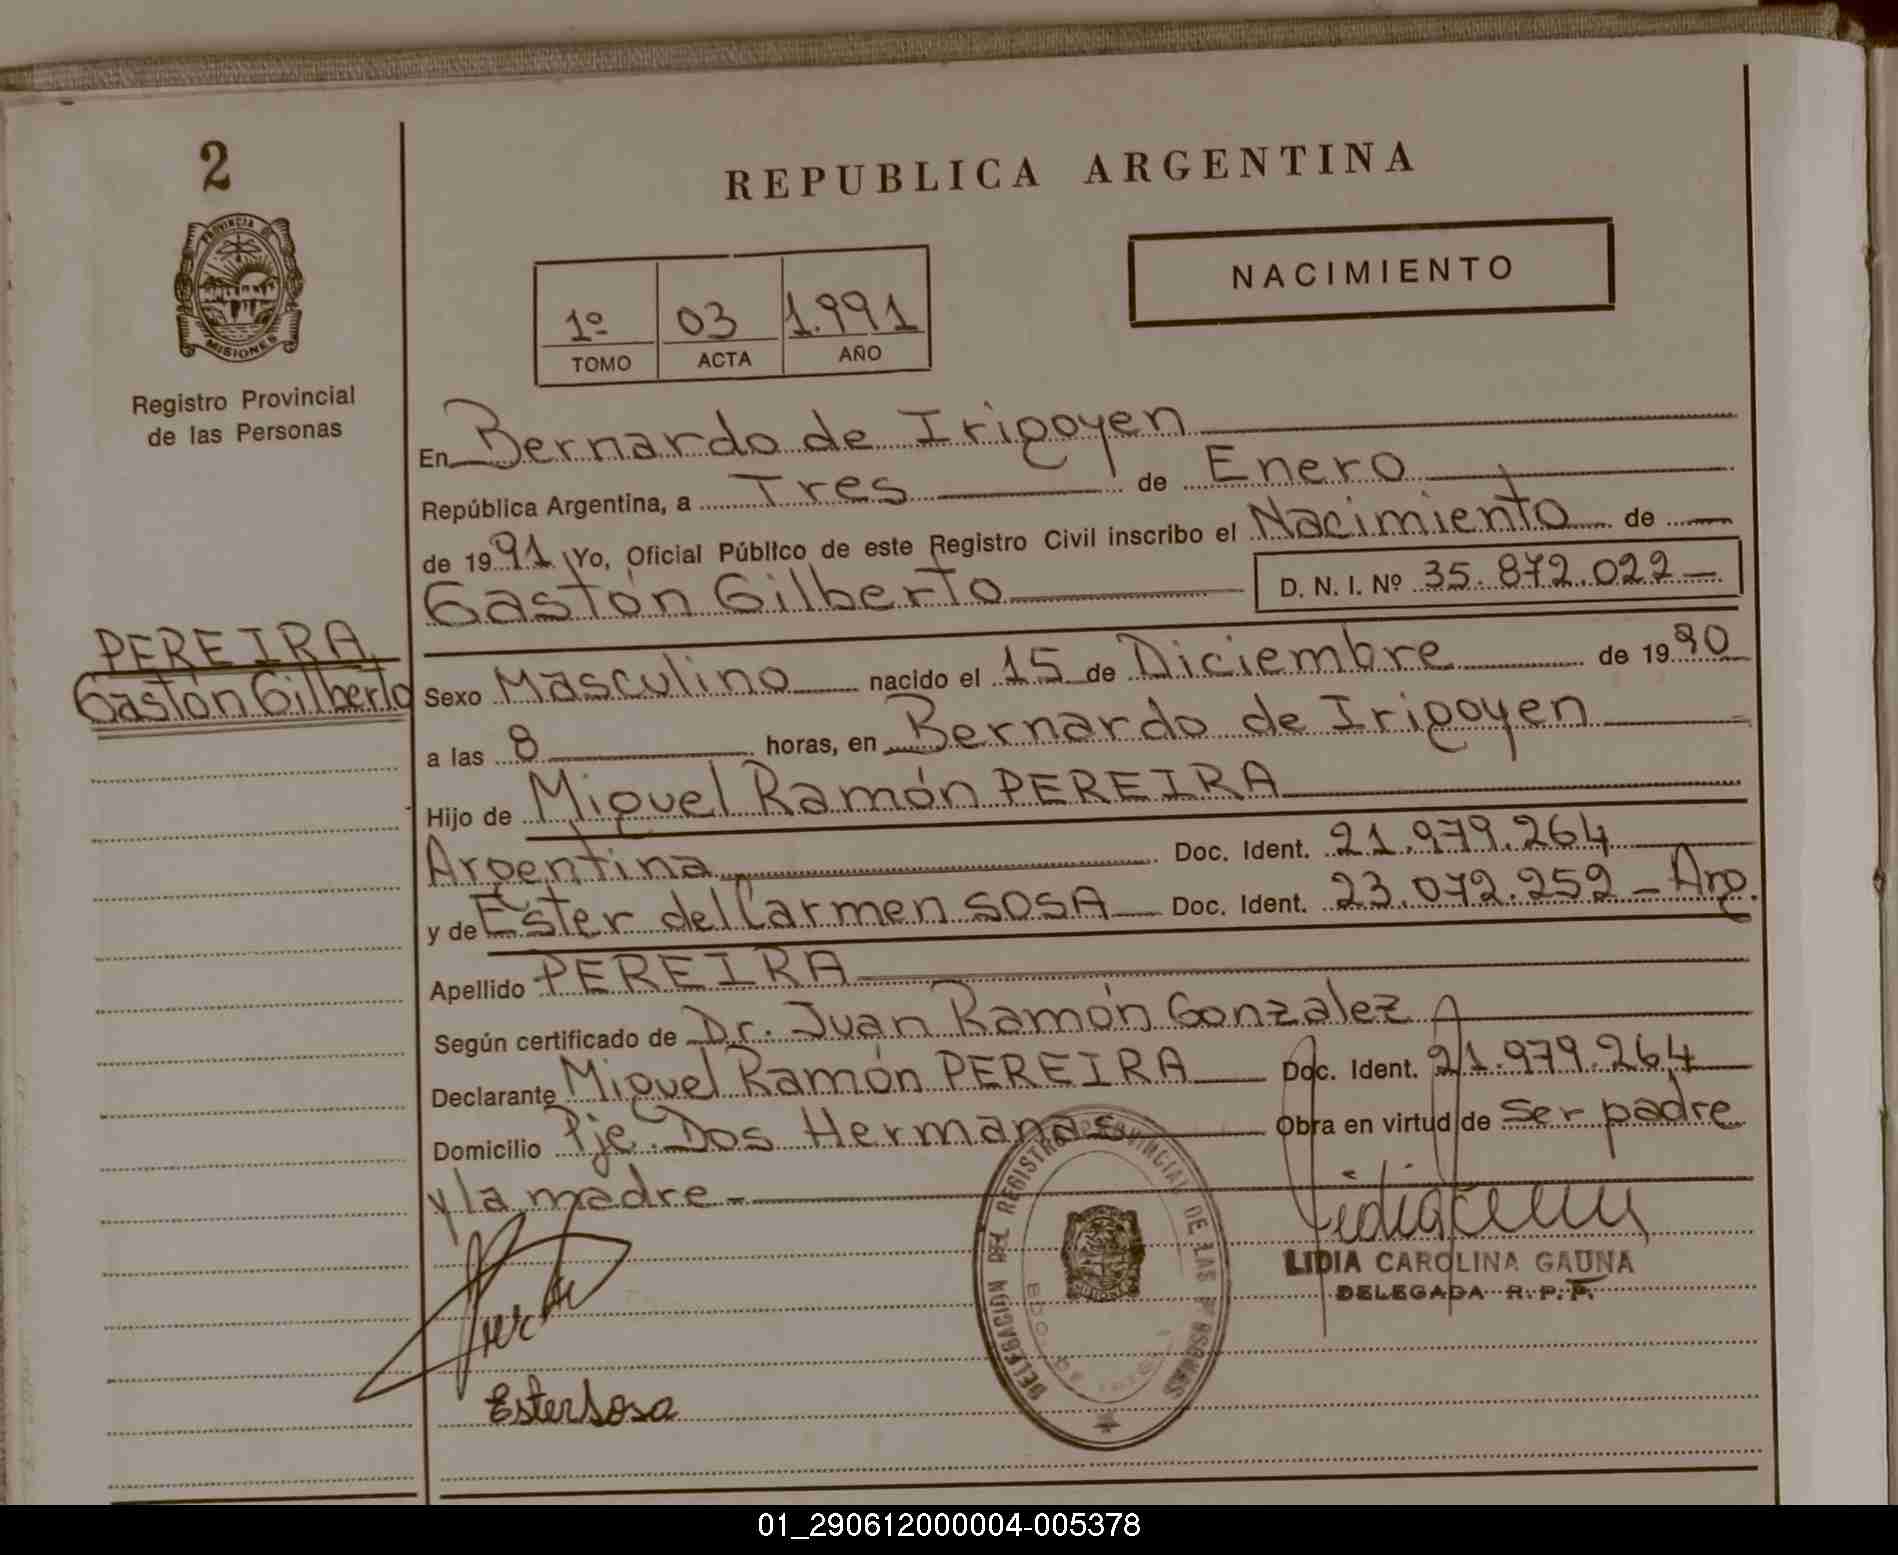 2
PROVINCIA DE
MISIONES
Registro Provincial
de las Personas
PEREIRA
Gastón Gilberto
REPUBLICA ARGENTINA
NACIMIENTO
1º 03 1.991
TOMO ACTA AÑO
En Bernardo de Irigoyen
República Argentina, a Tres de Enero
de 1991 Yo, Oficial Público de este Registro Civil inscribo el Nacimiento de
Gastón Gilberto D. N. I. Nº 35.872.022
Sexo Masculino nacido el 15 de Diciembre de 1990
a las 8 horas, en Bernardo de Irigoyen
Hijo de Miguel Ramón PEREIRA
Argentina Doc. Ident. 21.979.264
y de Ester del Carmen SOSA Doc. Ident. 23.072.252 - Arg.
Apellido PEREIRA
Según certificado de Dr. Juan Ramón Gonzalez
Declarante Miguel Ramón PEREIRA Doc. Ident. 21.979.264
Domicilio Pje. Dos Hermanas Obra en virtud de ser padre
y la madre -
DELEGACION DEL REGISTRO PROVINCIAL DE LAS PERSONAS
BDO. DE IRIGOYEN
LIDIA CAROLINA GAUNA
DELEGADA R. P. P.
Ester Sosa
01_290612000004-005378